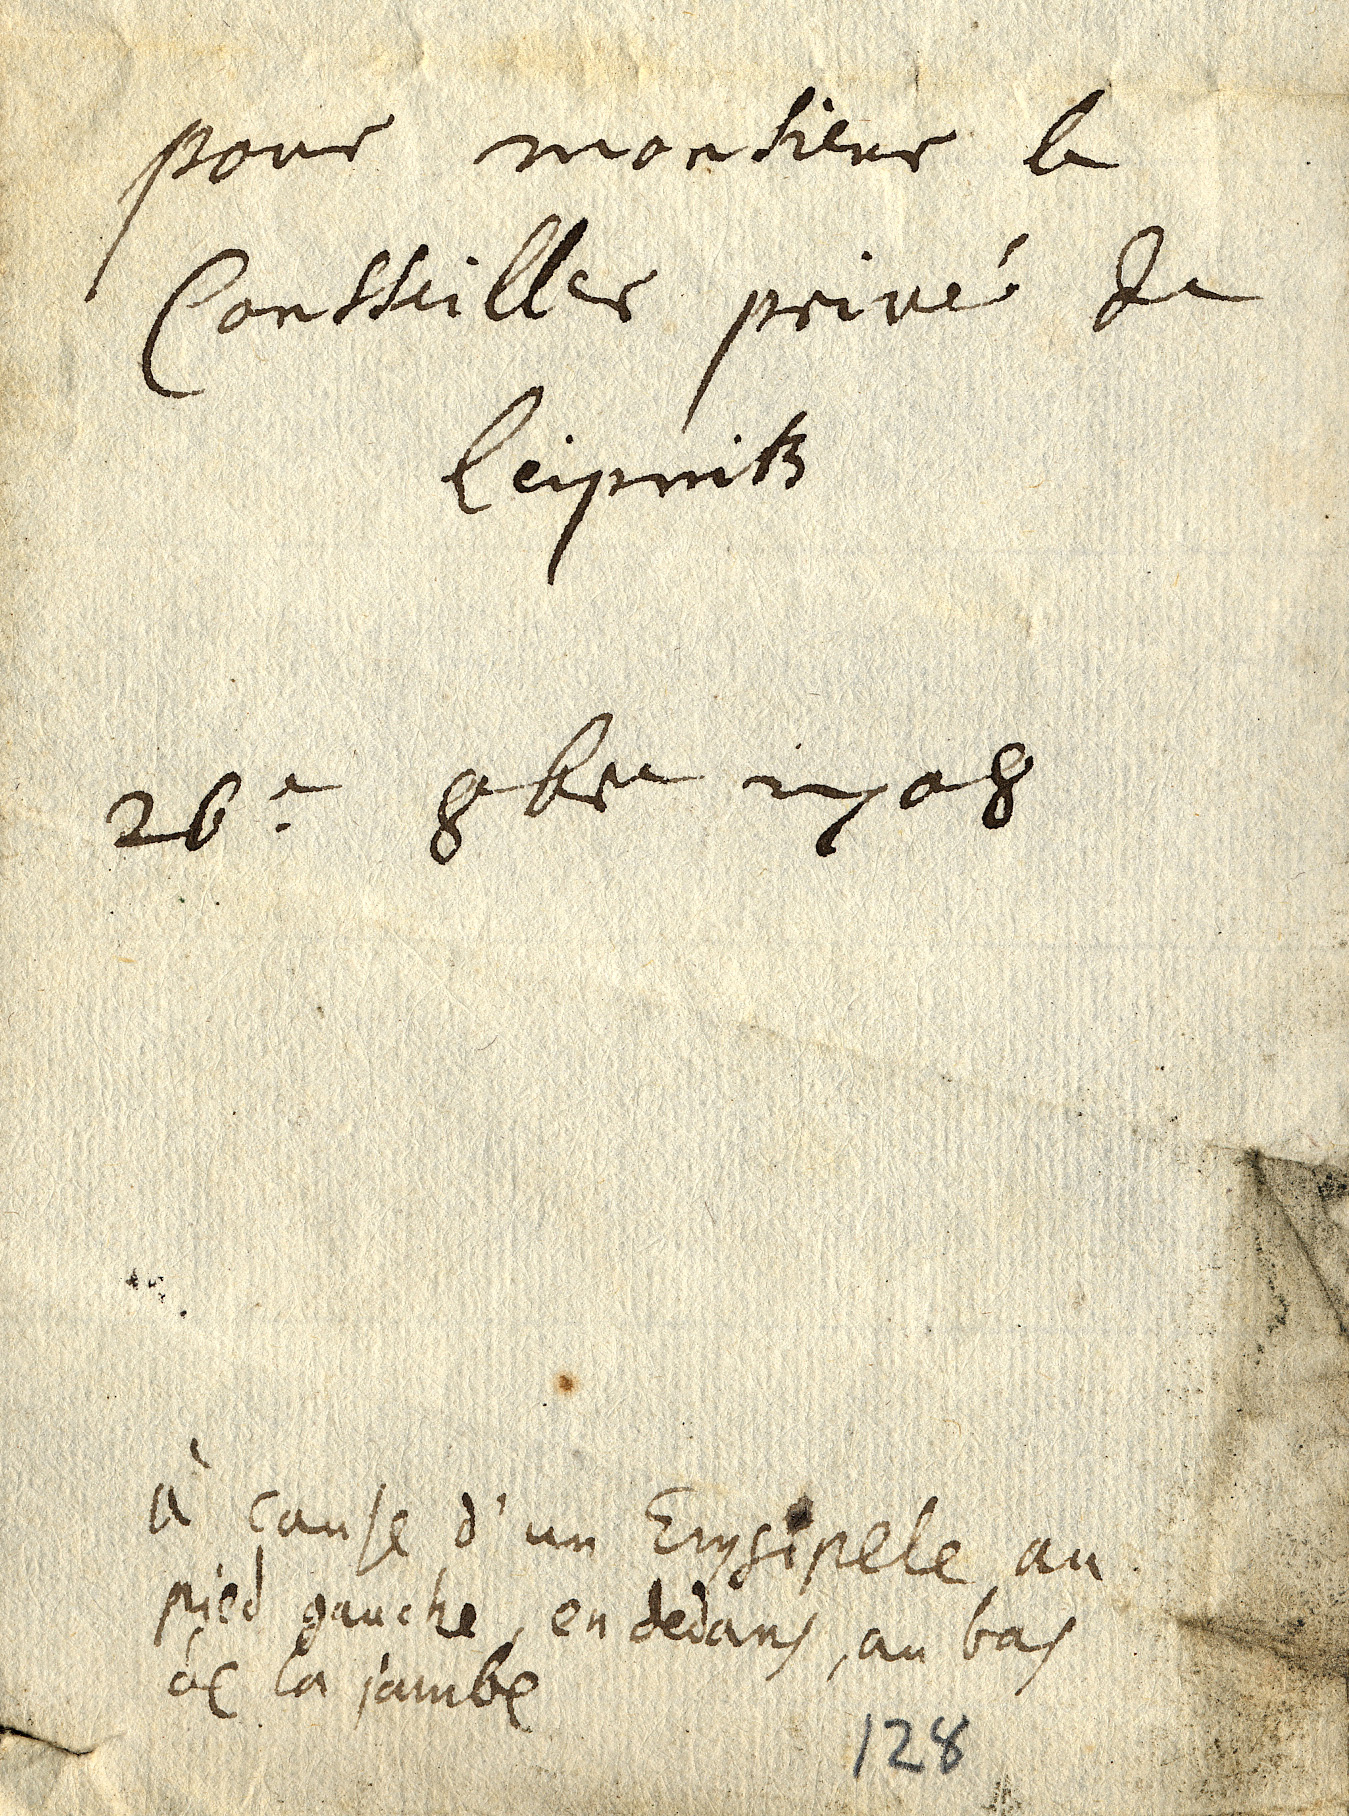 pour monsieur le
Consseiller privé de
Leipnitz
26e 8bre 1708
à cause d'un Erysipele au
pied gauche, en dedans, au bas
de la jambe
128